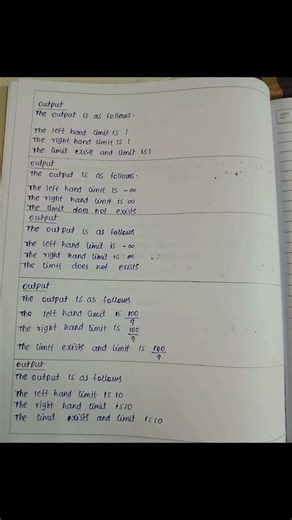 output
The output is as follows.
The left hand limit is 1
The right hand limit is 1
The limit exists and limit is 1
output
The output is as follows.
The left hand limit is -∞
The right hand limit is ∞
The limit does not exists
output
The output is as follows
The left hand limit is -∞
The right hand limit is ∞
The limit does not exists.
output
The output is as follows
The left hand limit is 100/9
The right hand limit is 100/9
The limit exists and limit is 100/9
output
The output is as follows
The left hand limit is 10
The right hand limit is 10
The limit exists and limit is 10